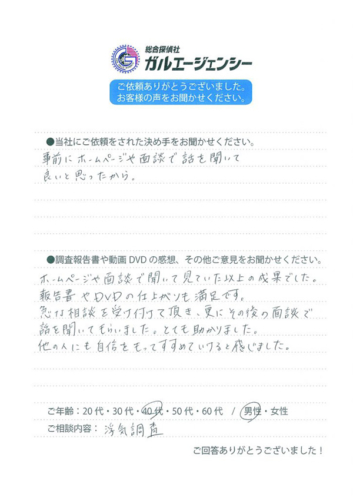 総合探偵社
ガルエージェンシー
ご依頼ありがとうございました。
お客様の声をお聞かせください。
●当社にご依頼をされた決め手をお聞かせください。
事前にホームページや面談で話を聞いて
良いと思ったから。
●調査報告書や動画DVDの感想、その他ご意見をお聞かせください。
ホームページや面談で聞いて見ていた以上の成果でした。
報告書やDVDの仕上がりも満足です。
急な相談を受け付けて頂き、更にその後の面談で
話を聞いてもらいました。とても助かりました。
他の人にも自信をもってすすめていけると感じました。
ご年齢：20代・30代・40代・50代・60代 / 男性・女性
ご相談内容：浮気調査
ご回答ありがとうございました！